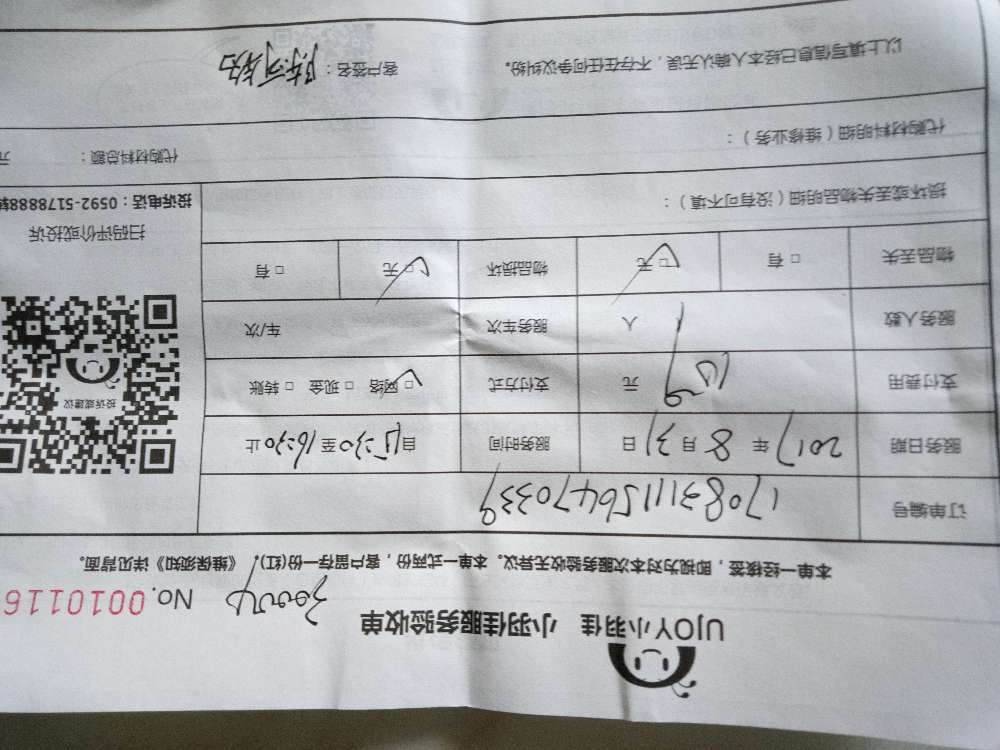 UJOY小羽佳 小羽佳服务验收单
No.0010116
本单一经核签，即视为对本次服务验收无异议。本单一式两份，客户留存一份(红)。《维保须知》详见背面。
订单编号 17083111156470339
服务日期 2017年8月31日 服务时间 自15:30至16:30止
支付费用 元 支付方式 □网络 □现金 □转账
服务人数 1人 服务车次 车/次
物品丢失 □有 □无 物品损坏 □无 □有
投诉或建议
扫码评价或投诉
投诉电话：0592-5178888转
损坏或丢失物品明细（没有可不填）：
代购材料明细（维修业务）：
代购材料总额： 元
以上填写信息已经本人确认无误，不存在任何争议纠纷。 客户签名：